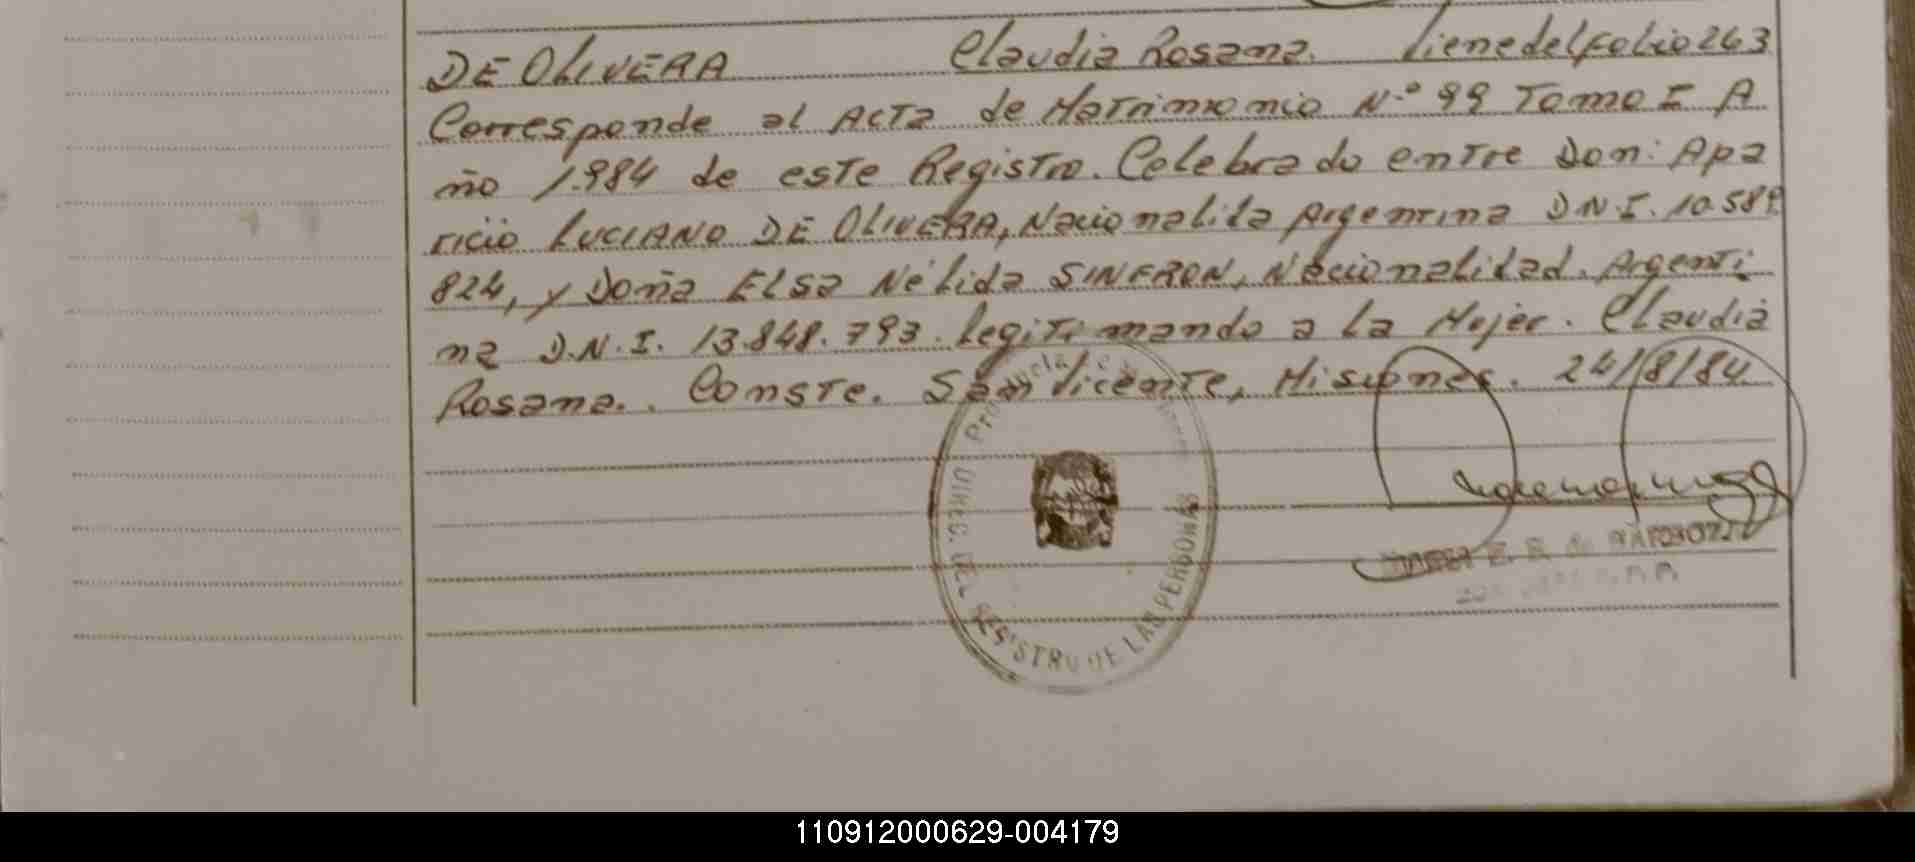 DE OLIVERA Claudia Rosana. Viene del folio 263
Corresponde al Acta de Matrimonio N.º 99 Tomo I A
ño 1.984 de este Registro. Celebrado entre Don: Apa
ricio LUCIANO DE OLIVERA, Nacionalida Argentina D.N.I. 10.589.
824, y Doña ELSA Nélida SINFRON, Nacionalidad. Argenti
na D.N.I. 13.848.793. Legitimando a la Mujer. Claudia
Rosana.. Conste. San Vicente, Misiones. 24/8/84
DIREC. DEL REGISTRO DE LAS PERSONAS
110912000629-004179